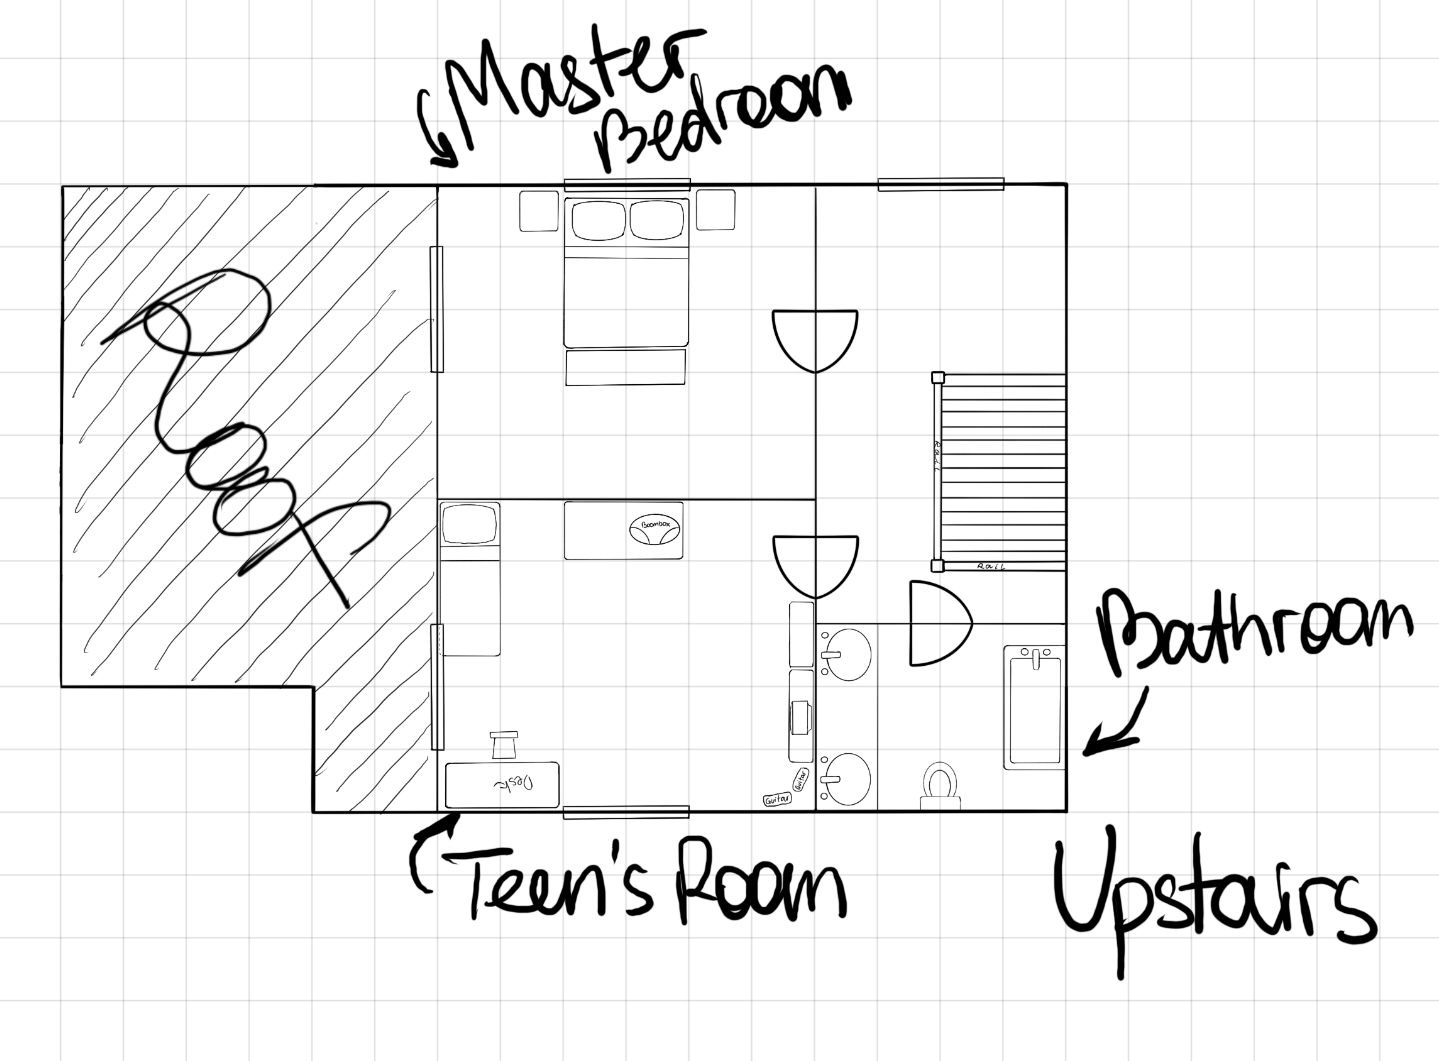 Master
Bedroom
Roof
Boombox
Rail
Rail
Bathroom
Desk
Guitar
Guitar
Teen's Room
Upstairs